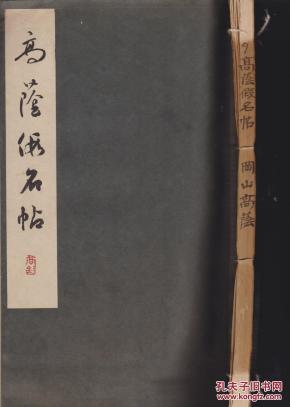 高蔭假名帖
9高蔭假名帖 岡山高蔭
孔夫子旧书网